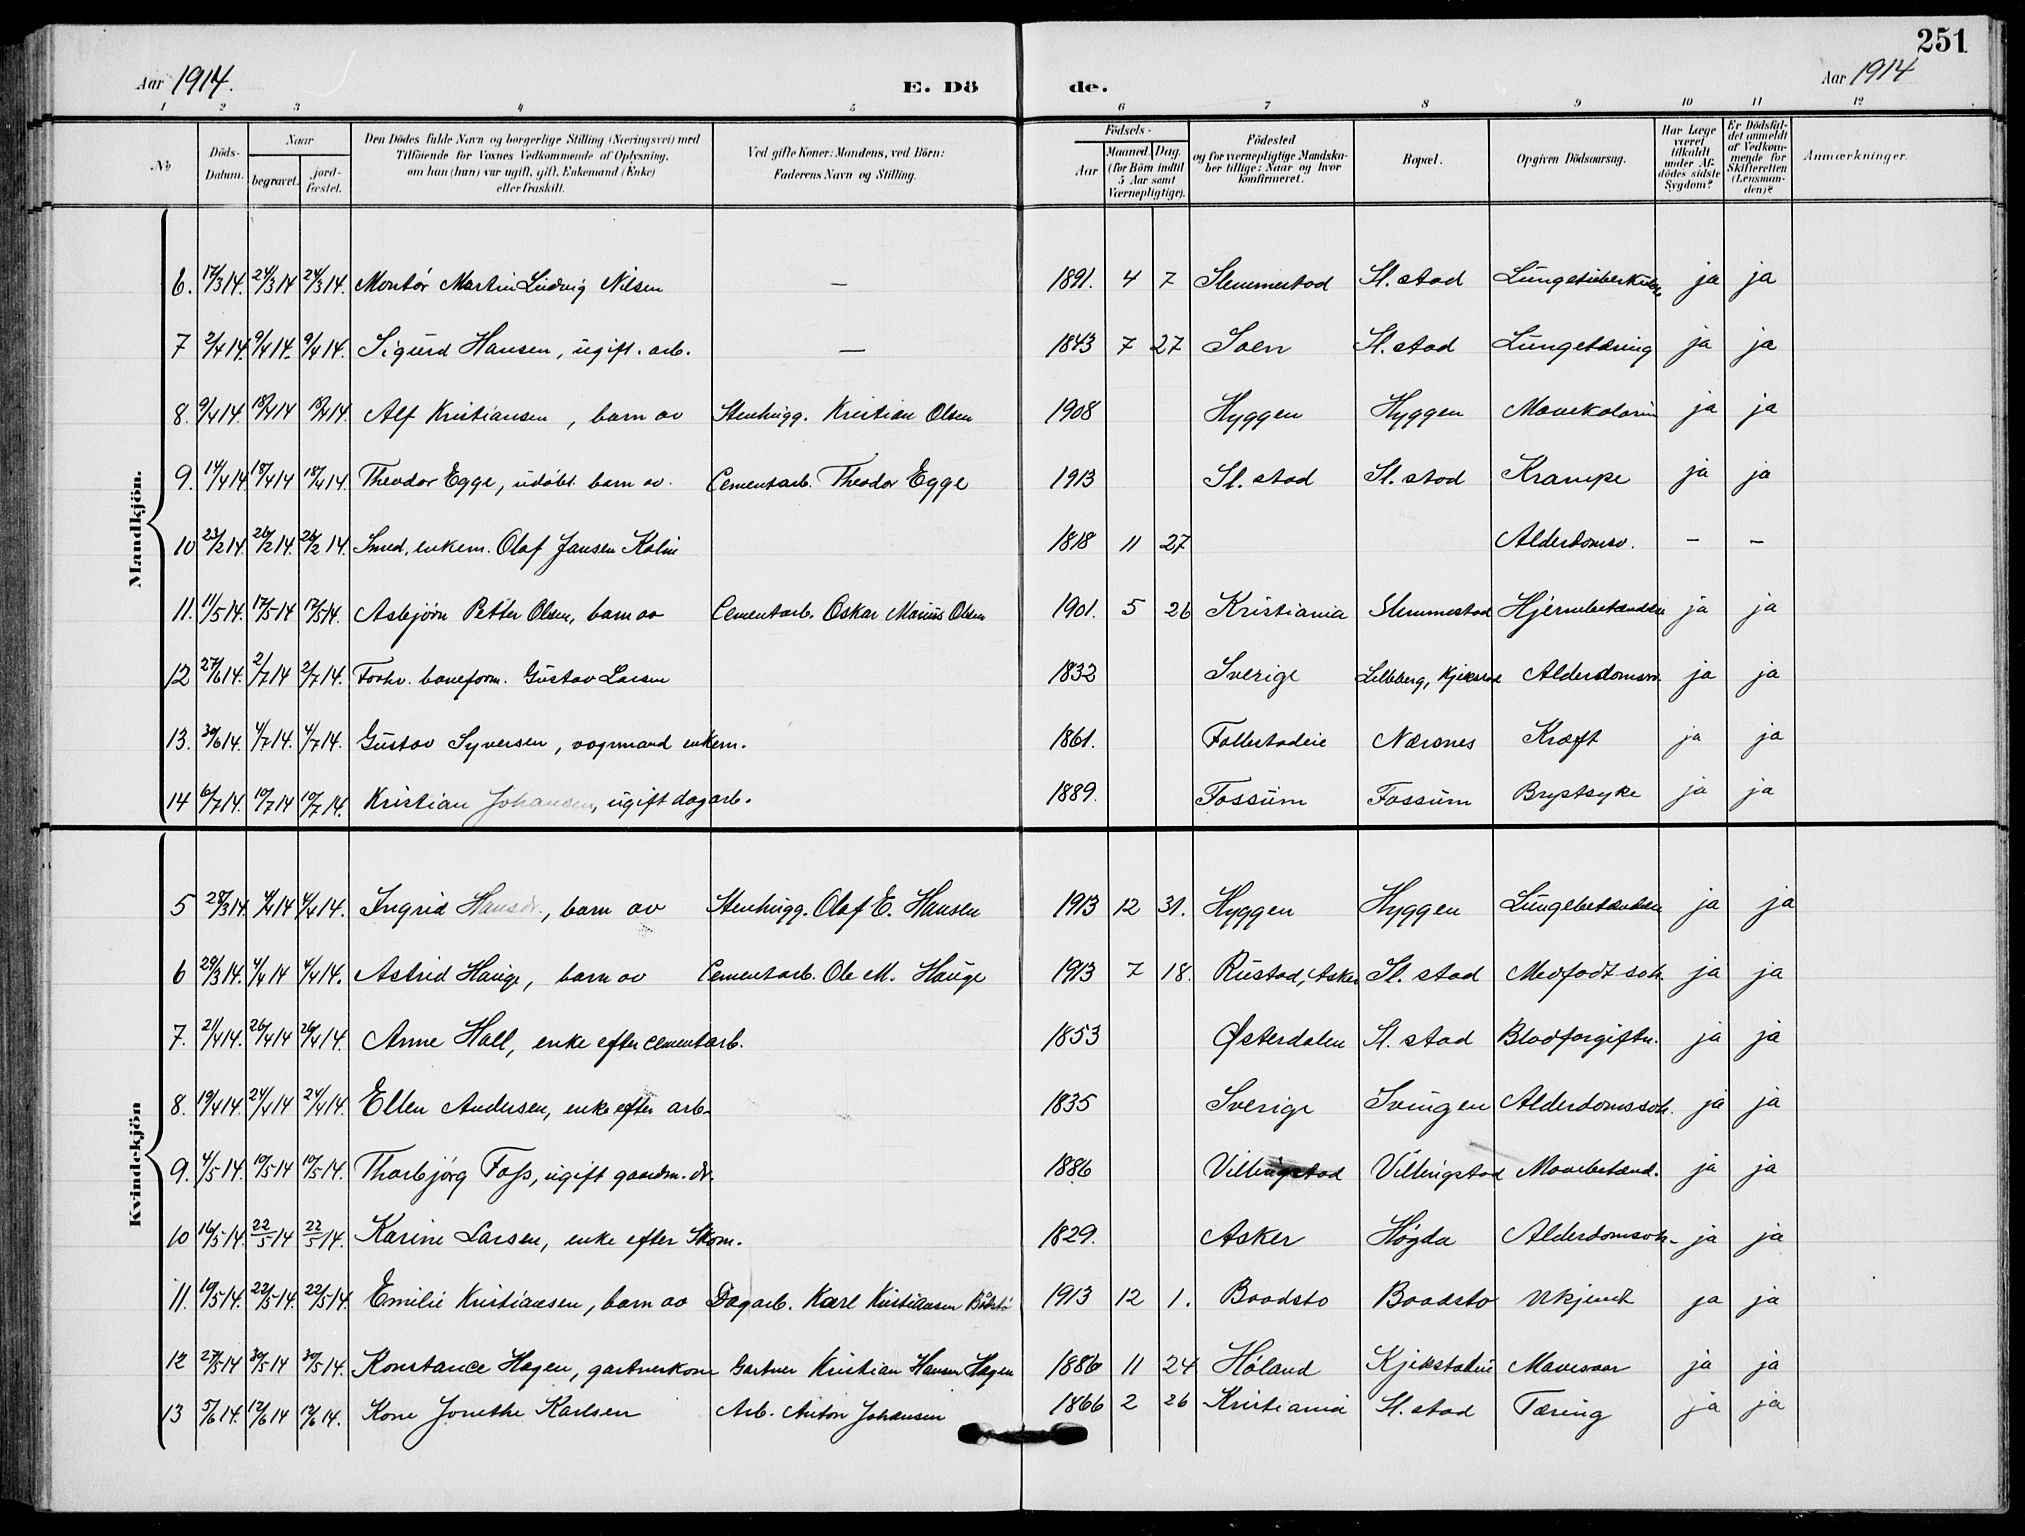 251
Aar 1914. E. Dö de. Aar 1914
1 2 3 4 5 6 7 8 9 10 11 12
№ Döds-Datum. Naar begravet. jord-fæstet. Den Dödes fulde Navn og borgerlige Stilling (Næringsvei) med Tilföiende for Voxnes Vedkommende af Oplysning, om han (hun) var ugift, gift, Enkemand (Enke) eller fraskilt. Ved gifte Koner: Mandens, ved Börn: Faderens Navn og Stilling. Födsels- Aar Maaned. Dag. (for Börn indtil 5 Aar samt Værnepligtige). Födested og for værnepligtige Mandska-ber tillige: Naar og hvor konfirmeret. Bopæl. Opgiven Dödsaarsag. Har Læge været tilkaldt under Af-dödes sidste Sygdom? Er Dödsfal-det anmeldt af Vedkom-mende for Skifteretten (Lensman-den)? Anmærkninger.
Mandkjön.
6. 17/3 14. 24/3 14 24/3 14. Montör Martin Ludvig Nilsen — 1891. 4 7 Slemmestad Sl. stad Lungetuberkulose ja ja
7 2/4 14 9/4 14. 9/4 14. Sigurd Hansen, ugift. arb. — 1843 7 27 Soen Sl. stad Lungetæring ja ja
8. 9/4 14. 18/4 14 18/4 14. Alf Kristiansen, barn av Stenhugg. Kristian Olsen 1908 Hyggen Hyggen ja ja
9. 14/4 14 18/4 14 18/4 14. Theodor Egge, udöbt barn av Cementarb. Theodor Egge 1913 Sl. stad Sl. stad Krampe ja ja
10 23/2 14. 26/2 14. 26/2 14. Smed, enkem. Olaf Jansen 1818 11 27 Alderdomsv. — —
11. 11/5 14. 17/5 14 17/5 14. Asbjörn Petter Olsen, barn av Cementarb. Oskar Marius Olsen 1901. 5 26 Kristiania Slemmestad Hjernebetændelse ja ja
12 27/6 14. 2/7 14 2/7 14. Forhv. baneform. Gustav Larsen 1832 Sverige Lilleberg, Alderdomsv. ja ja
13. 30/6 14. 4/7 14. 4/7 14. Gustav Syversen, vognmand enkem. 1861. Follestadeie Nærsnes Kræft ja ja
14 6/7 14. 10/7 14 10/7 14. Kristian Johansen, ugift dagarb. 1889. Fossum Fossum Brystsyke ja ja
Kvindekjön
5 28/3 14. 4/4 14 4/4 14. Ingrid Hansdr., barn av Stenhugg. Olaf E. Hansen 1913 12 31. Hyggen Hyggen Lungebetændelse ja ja
6 29/3 14. 4/4 14 4/4 14. Astrid Hauge, barn av Cementarb. Ole M. Hauge 1913 7 18. Rustad, Asker Sl. stad Medfödt svk. ja ja
7. 21/4 14. 26/4 14 26/4 14. Anne Hall, enke efter cementarb. 1853 Østerdalen Sl. stad Blodforgiftn. ja ja
8. 19/4 14. 24/4 14 24/4 14. Ellen Andersen, enke efter arb. 1835 Sverige Svingen Alderdomssvk. ja ja
9. 4/5 14. 10/5 14 10/5 14. Thorbjörg Foss, ugift gaardm. dr. 1886 Villingstad Villingstad Mavebetænd. ja ja
10 16/5 14. 22/5 14 22/5 14. Karine Larsen, enke efter Skom. 1829. Asker Högda Alderdomsvk. ja ja
11. 19/5 14. 22/5 14. 22/5 14. Emilie Kristiansen, barn av Dagarb. Karl Kristiansen Båtstö 1913 12 1. Baadsto Baadsto Ukjendt ja ja
12 27/5 14 30/5 14 30/5 14. Konstance Hagen, gartnerkone Gartner Kristian Hansen Hagen 1886 11 24 Höland Kjekstadeie Mavesaar ja ja
13 5/6 14. 12/6 14 12/6 14. Kone Jonethe Karlsen Arb. Anton Johansen 1866 2 26 Kristiania Sl. stad Tæring ja ja